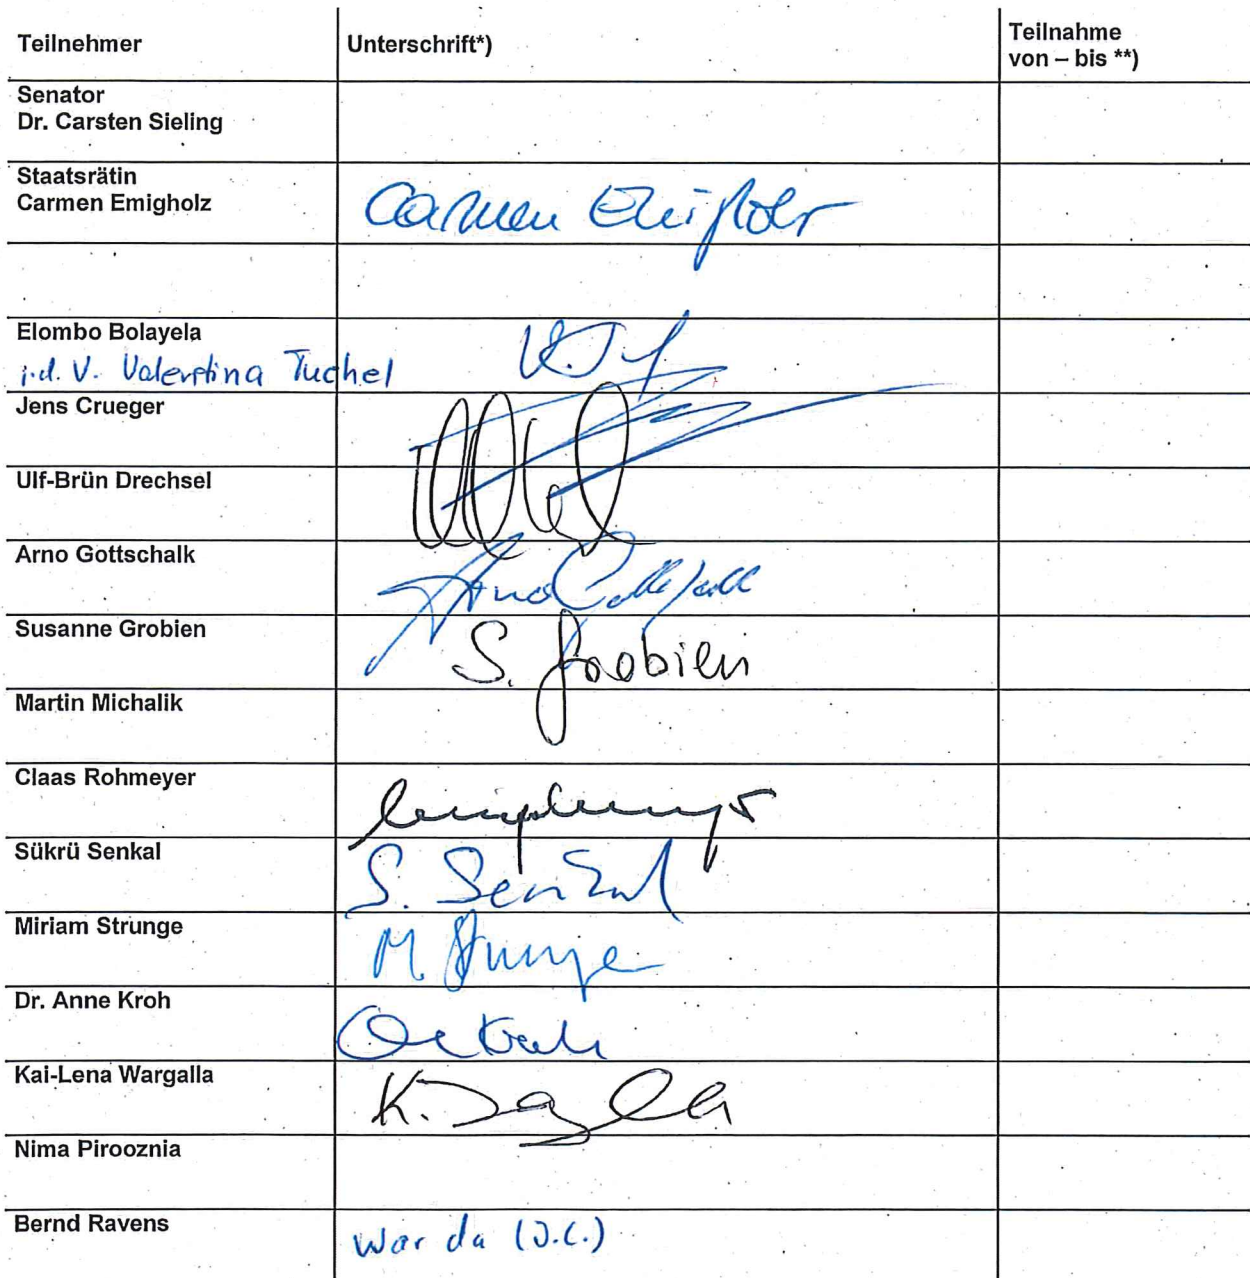 Teilnehmer Unterschrift*) Teilnahme
von – bis **)
Senator
Dr. Carsten Sieling
Staatsrätin
Carmen Emigholz Carmen Emigholz
Elombo Bolayela
i.d. V. Valentina Tuchel
Jens Crueger
Ulf-Brün Drechsel
Arno Gottschalk Arno Gottschalk
Susanne Grobien S. Grobien
Martin Michalik
Claas Rohmeyer
Sükrü Senkal S. Senkal
Miriam Strunge M. Strunge
Dr. Anne Kroh
Kai-Lena Wargalla
Nima Pirooznia
Bernd Ravens war da (J.C.)